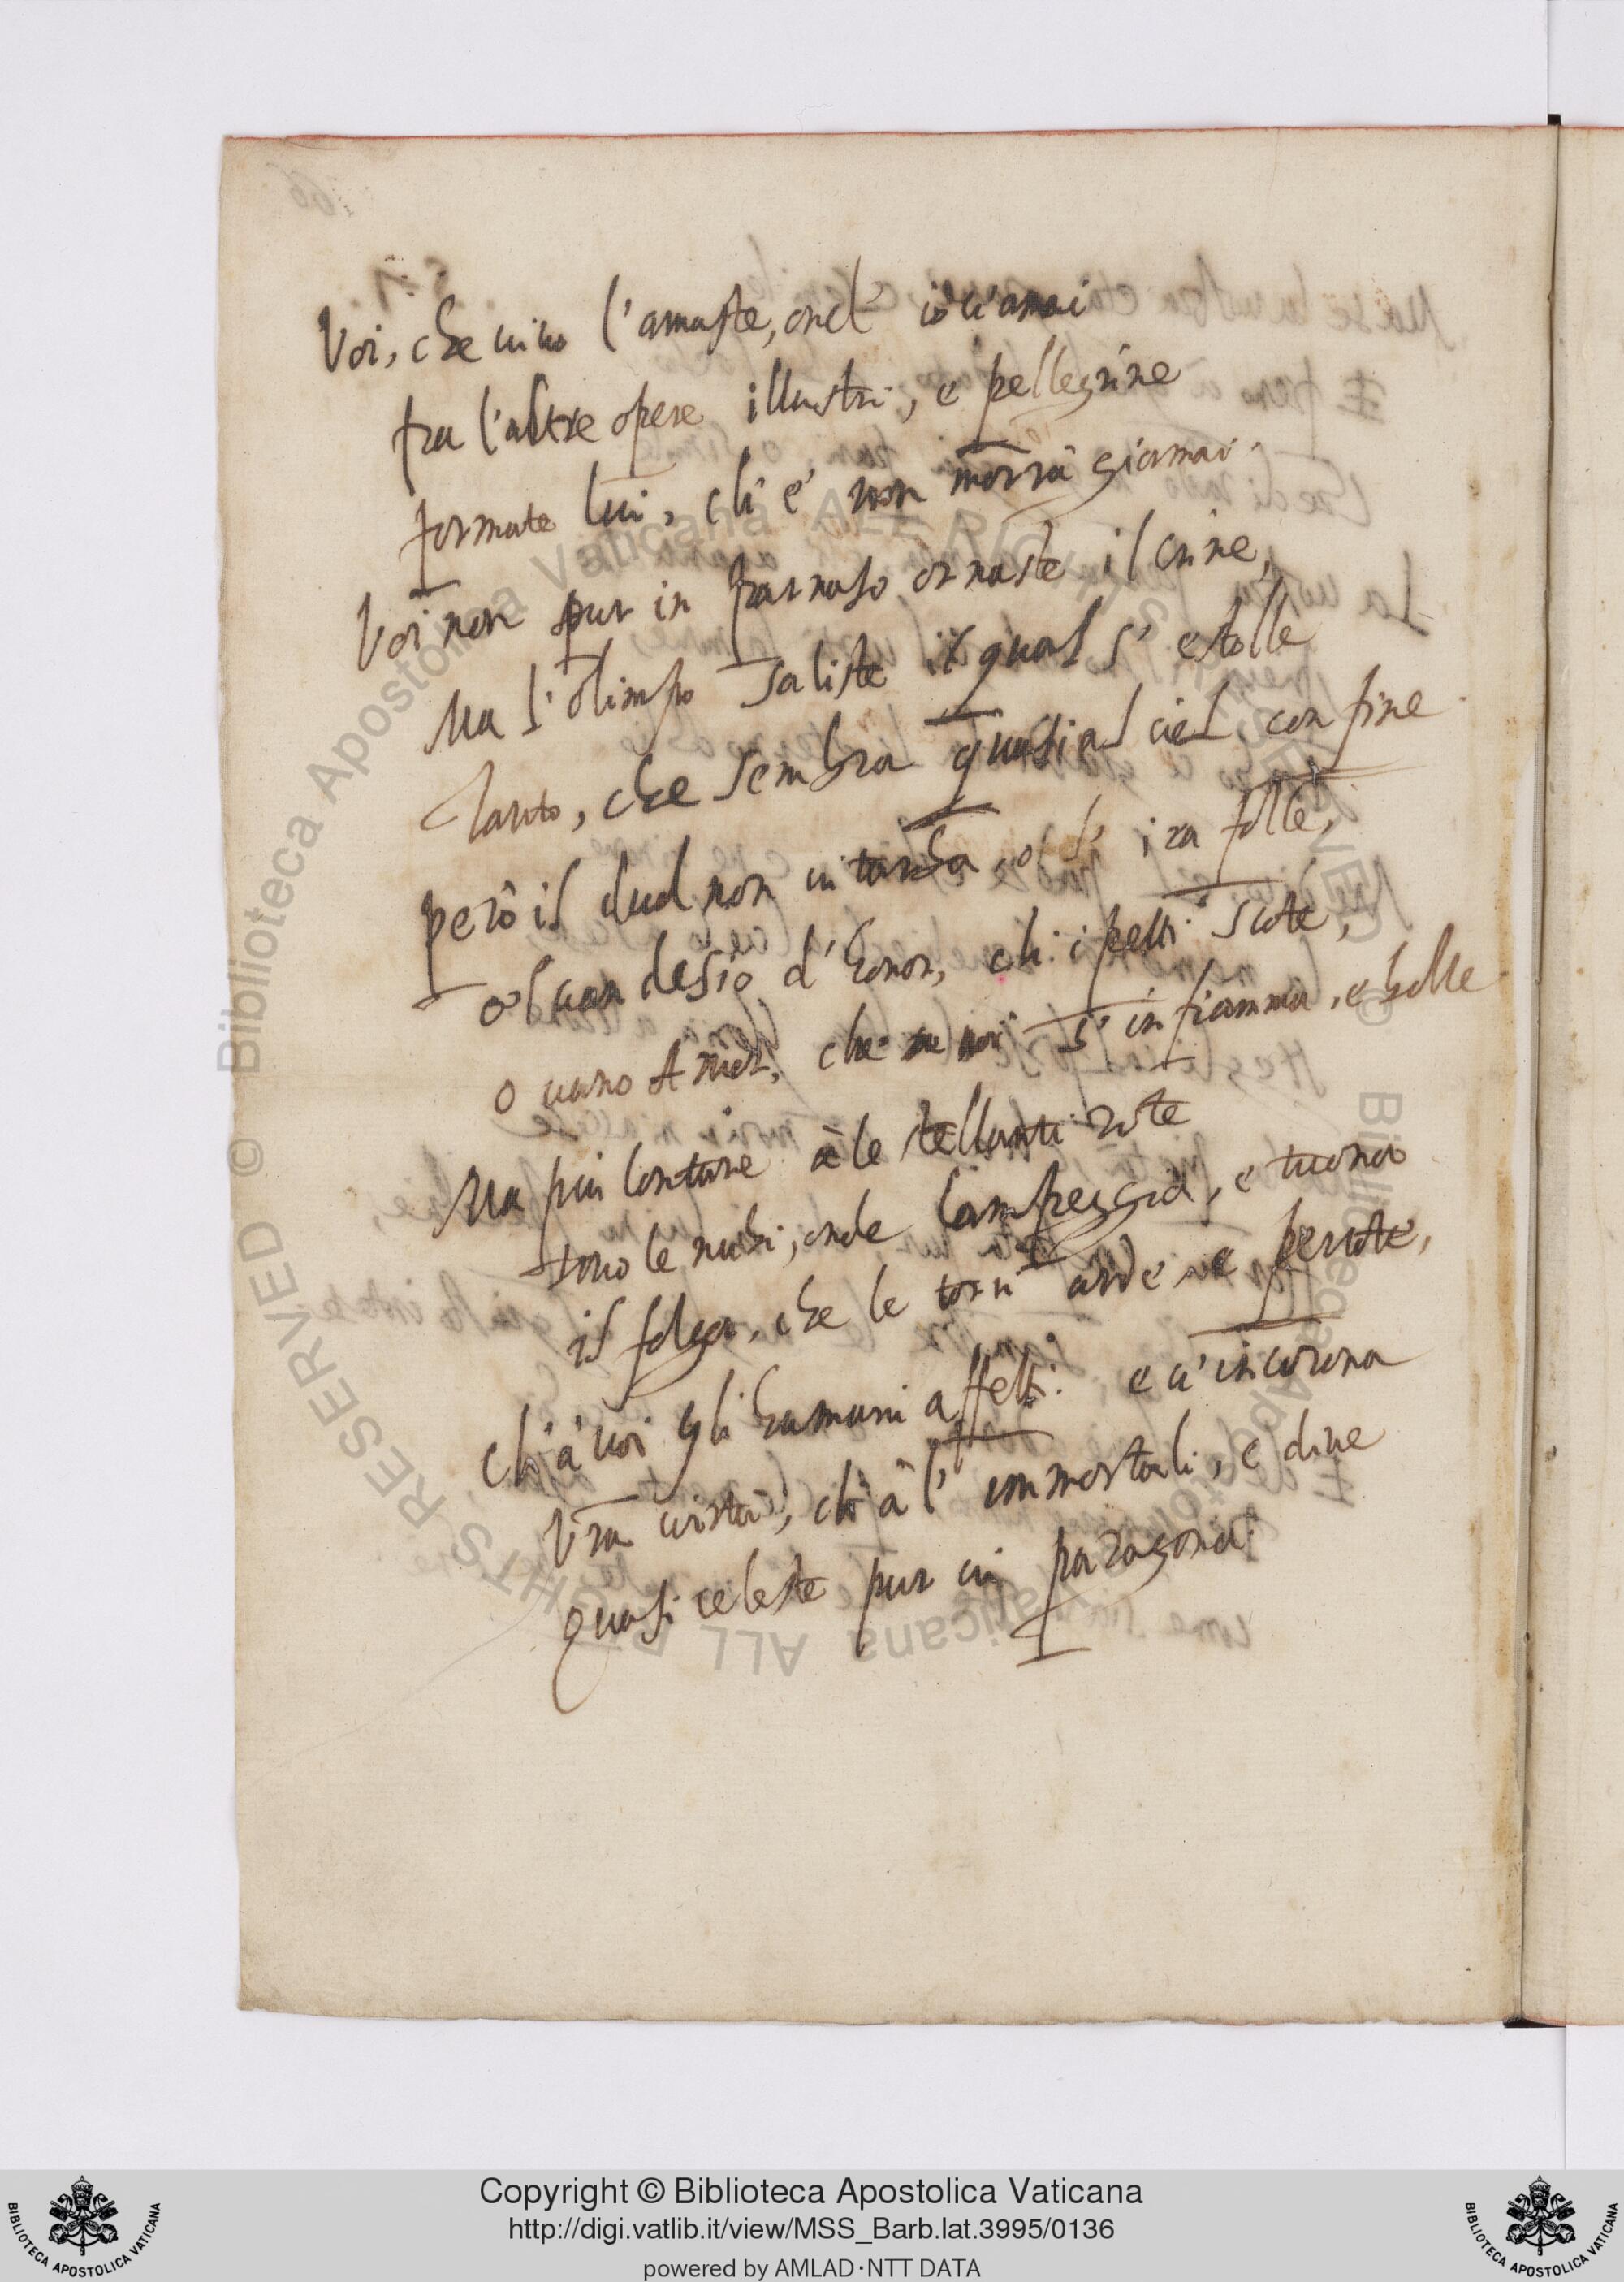 Voi, che uiuo l'amaste, ond' io u'amai
fra l'altre opere illustri, e pellegrine
formate lui, ch' e' non morrà giamai.
Voi non pur in Parnaso ornaste il crine,
Ma l'olimpo saliste il qual s' estolle
Tanto, che sembra quasi al ciel confine
però il duol non ui turba, o l' ira folle,
o l uan desio d' honor, ch' i petti scote,
o uano Amor, che ne noi s' infiamma, e bolle
Ma piu lontane à le stellanti rote
sono le nubi, onde lampeggia, e tuona
il folgor, che le torri arde e percote,
ch' à uoi gli humani affetti. e u' incorona
Vra uirtù, ch' à l' immortali, e diue
quasi celeste pur ui paragona.
Copyright © Biblioteca Apostolica Vaticana
http://digi.vatlib.it/view/MSS_Barb.lat.3995/0136
powered by AMLAD·NTT DATA
BIBLIOTECA APOSTOLICA VATICANA
BIBLIOTECA APOSTOLICA VATICANA
© Biblioteca Apostolica Vaticana ALL RIGHTS RESERVED
© Biblioteca Apostolica Vaticana ALL RIGHTS RESERVED